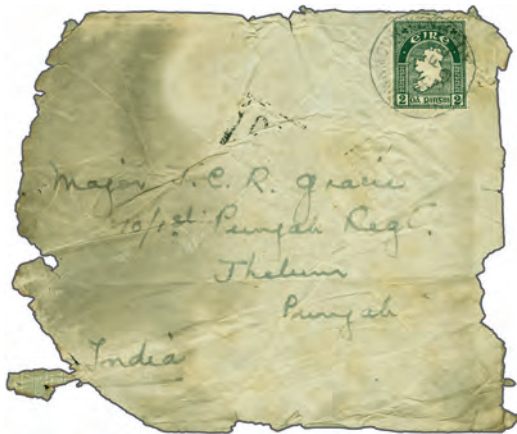 éire
2 dá pinġin 2
Major C. R. Gracie
10/1st Punjab Regt.
Jhelum
Punjab
India